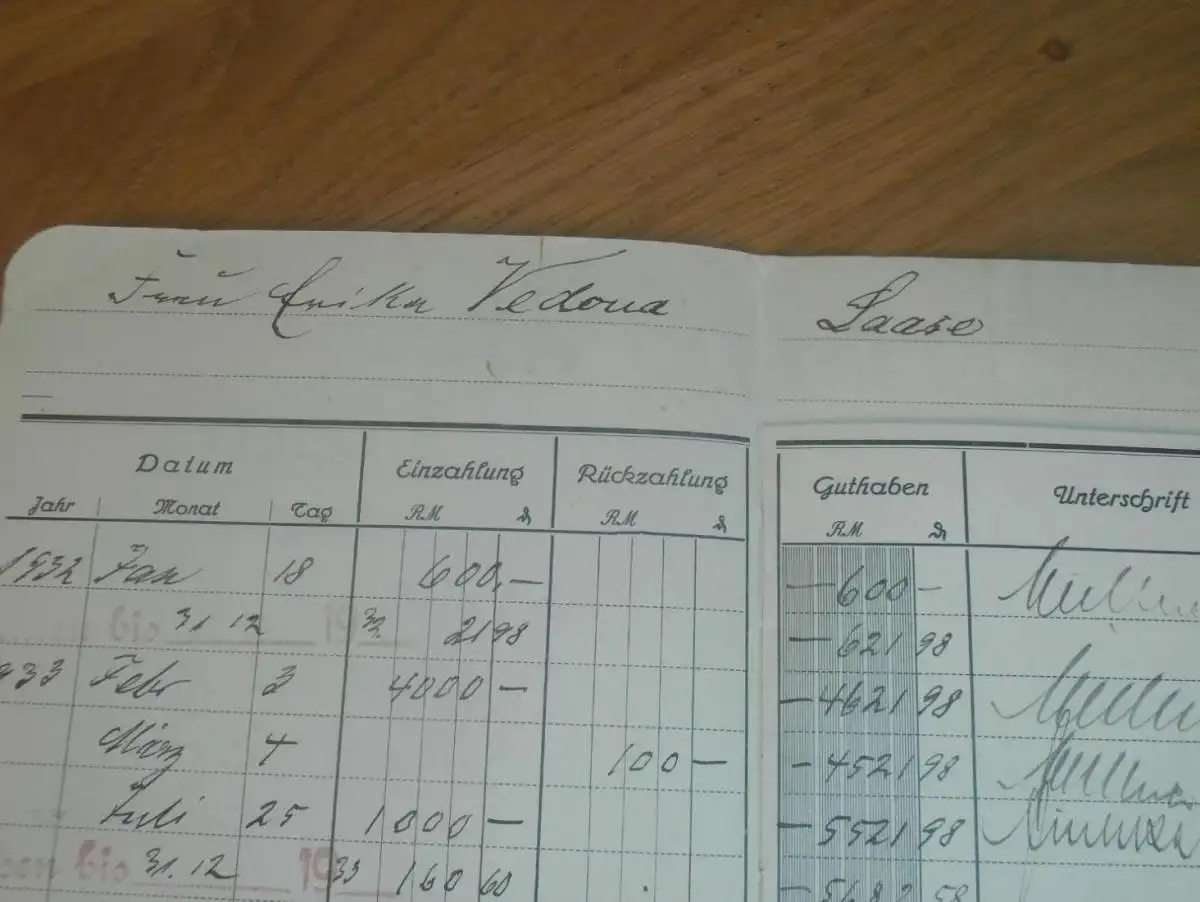 Frau Erika Vedova Laase
Datum Einzahlung Rückzahlung Guthaben Unterschrift
Jahr Monat Tag RM ₰ RM ₰ RM ₰
1932 Jan 18 600,— —600—
bis 31 12 19 32 21 98 —621 98
933 Febr 3 4000— —4621 98
März 4 100— —4521 98
Juli 25 1000— —5521 98
ben bis 31.12 1933 160 60 58